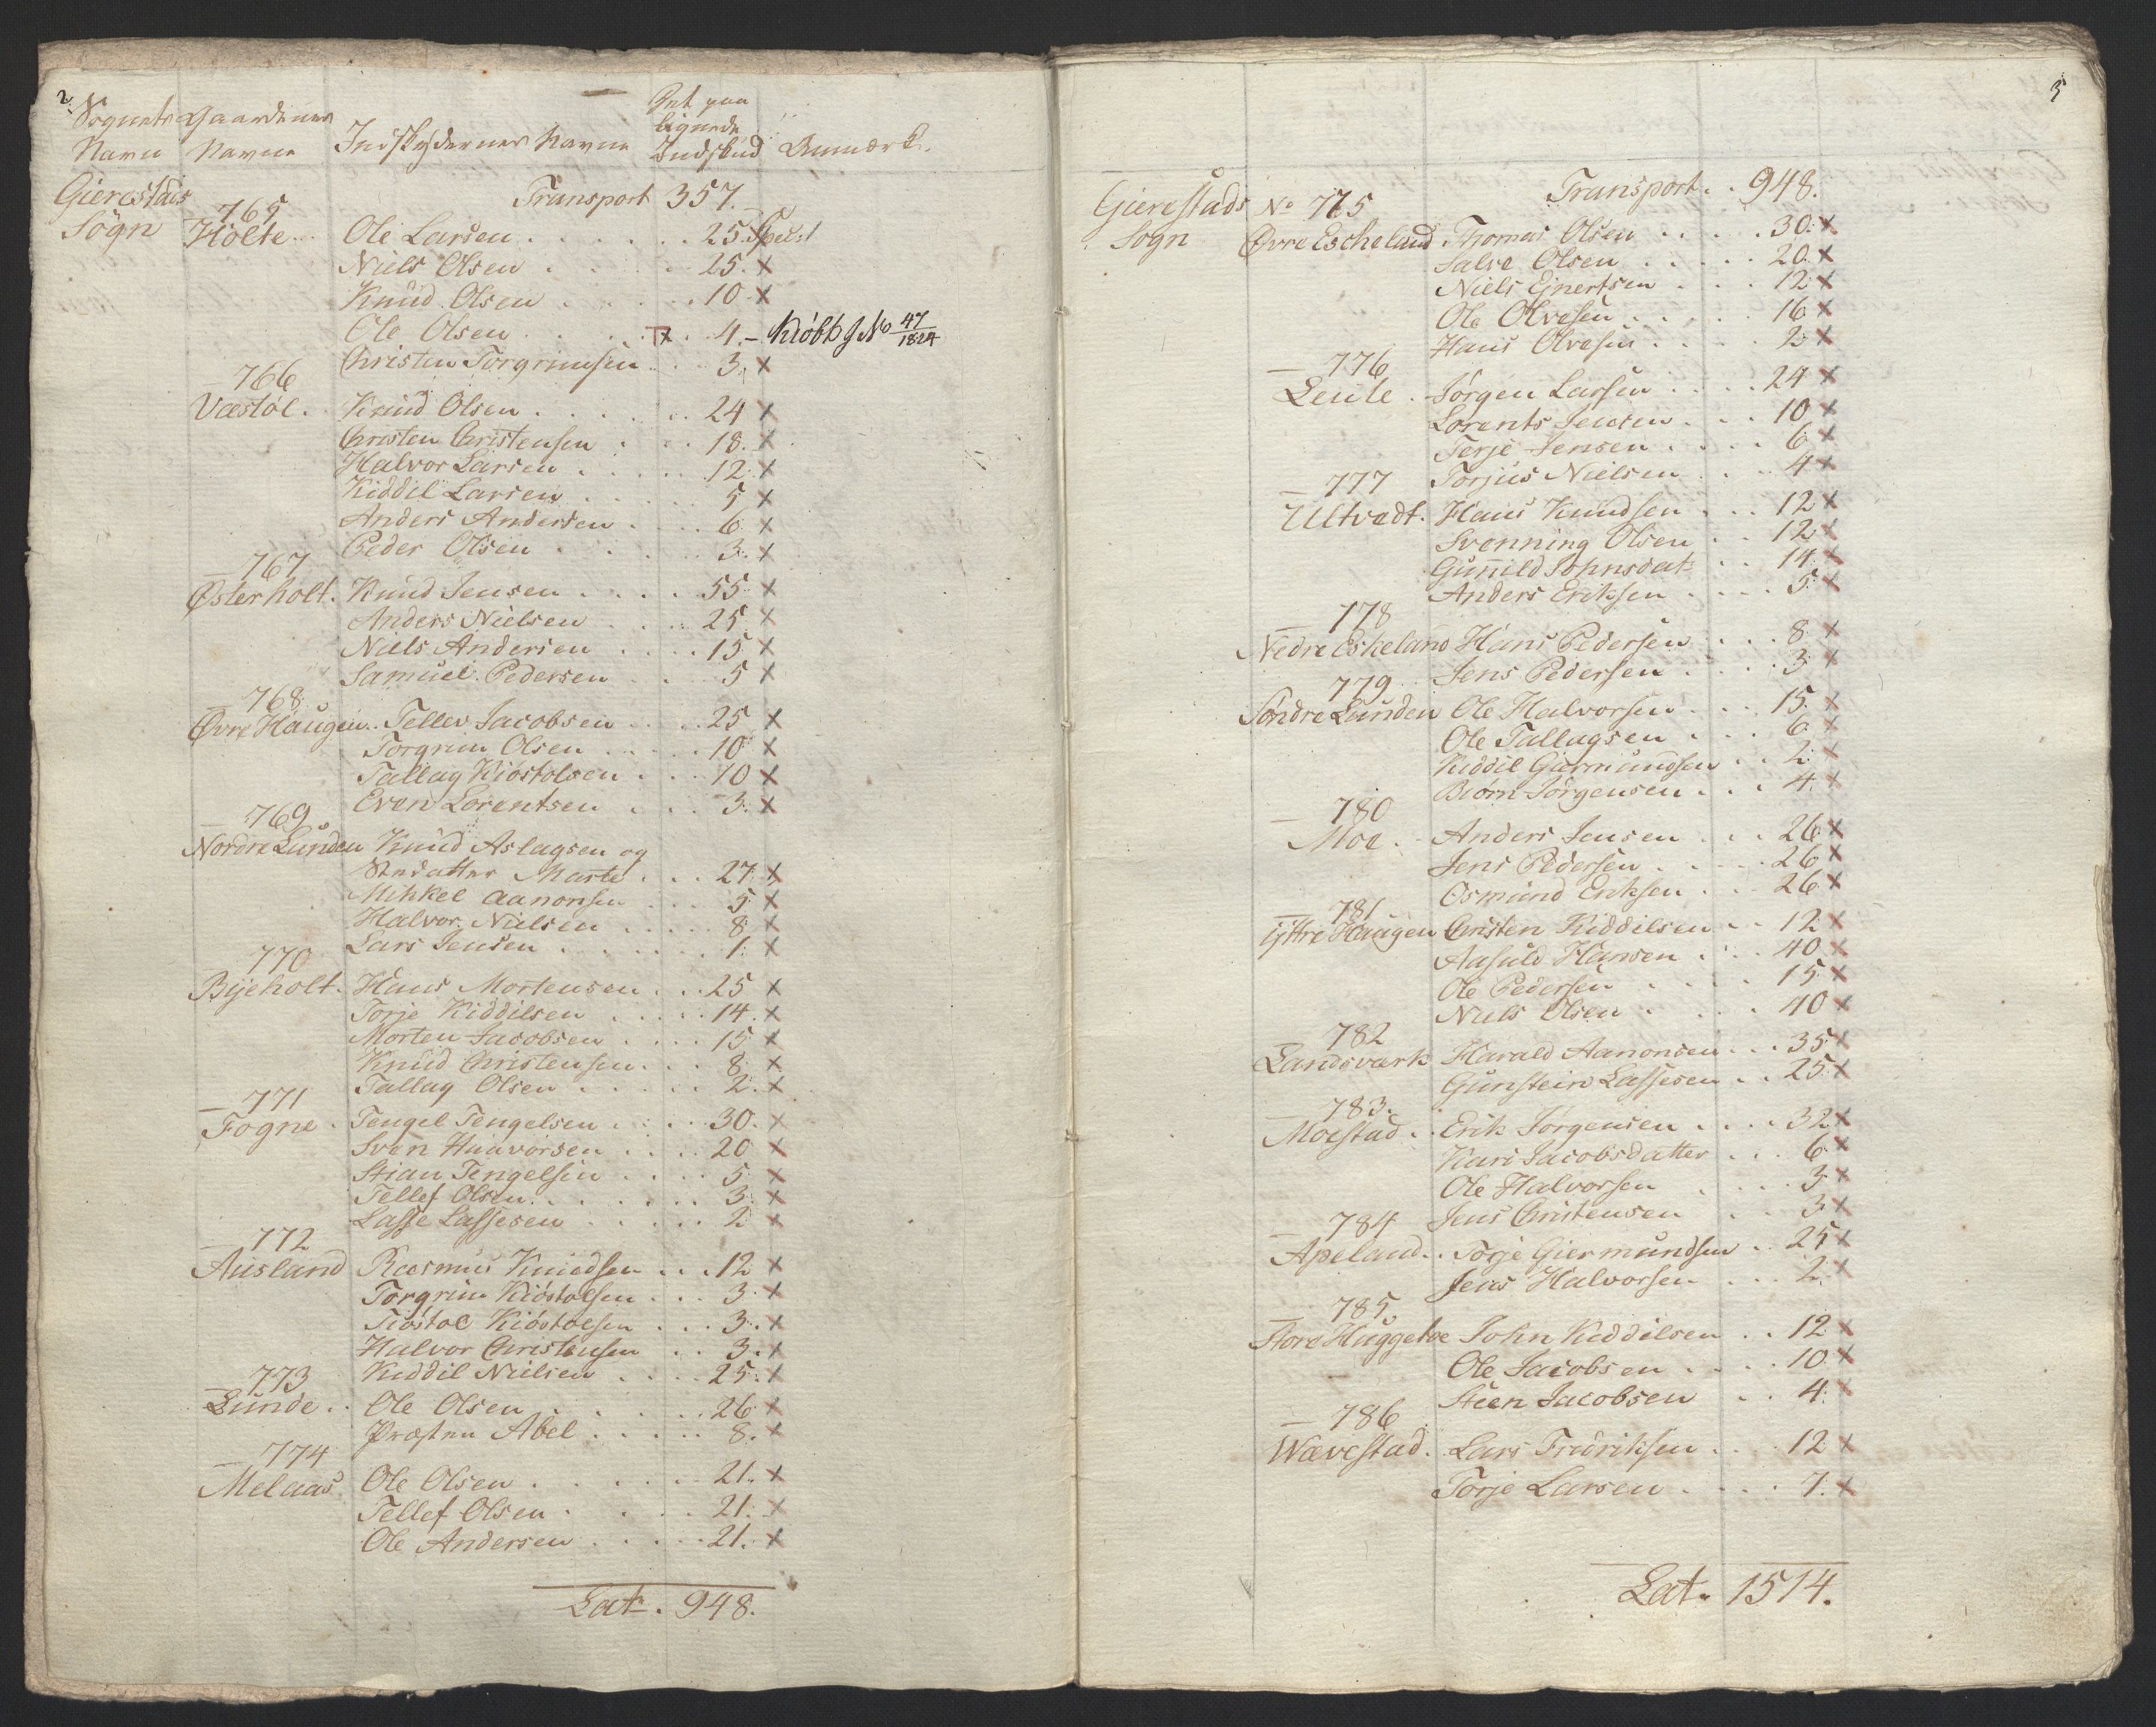 2.
Sognets Gaardenes Det paa
lignede
Navn Navne Indskydernes Navne Indskud Anmærk.
Gierestads Transport 357.
Sogn 765
Holte Ole Larsen 25.
Niels Olsen 25. x
Knud Olsen 10 x
Ole Olsen 4. No 47/1824
Christen Torgrimsen 3. x
766
Væstøl. Knud Olsen 24 x
Christen Christensen 18. x
Halvor Larsen 12. x
Kiddil Larsen 5 x
Anders Andersen 6. x
Peder Olsen 3. x
767
Østerholt. Knud Jensen 55 x
Anders Nielsen 25 x
Niels Andersen 15 x
Samuel Pedersen 5 x
768
Øvre Haugen. Tellev Jacobsen 25 x
Torgrim Olsen 10 x
Tallag Kiøstolsen 10 x
Even Lorentsen 3. x
769
Nordre Lunden Knud Aslagsen og
Stedatter Marte 27. x
Mihkel Aanonsen 5 x
Halvor Nielsen 8 x
Lars Jensen 1. x
770
Byeholt. Hans Mortensen 25 x
Torje Kiddilsen 14. x
Morten Jacobsen 15 x
Knud Christensen 8. x
Tallag Olsen 2. x
771
Fogne. Tengel Tengelsen 30. x
Sven Halvorsen 20 x
Stian Tengelsen 5 x
Tellef Olsen 3. x
Lasse Lassesen 2 x
772
Ausland Rasmus Knudsen 12 x
Torgrim Kiøstolsen 3. x
Kiøstol Kiøstolsen 3. x
Halvor Christensen 3. x
Kiddil Nielsen 25. x
773
Lunde. Ole Olsen 26 x
Præsten Abel 8. x
774
Melaas Ole Olsen 21. x
Tellef Olsen 21. x
Ole Andersen 21. x
Lat. 948.
3
Transport. 948.
Gierestads No 775
Sogn Øvre Escheland Thomas Olsen 30. x
Salve Olsen 20. x
Niels Ejnertsen 12. x
Ole Olvesen 16. x
Hans Olvesen 2. x
776
Leule. Jørgen Larsen 24 x
Lorents Jensen 10 x
Terje Jensen 6. x
Torjus Nielsen 4 x
777
Ultvedt. Hans Knudsen 12 x
Svenning Olsen 12 x
Gunnild Johnsdat: 14. x
Anders Eriksen 5. x
778
Nedre Eskeland Hans Pedersen 8 x
Jens Pedersen 3. x
779
Søndre Lunden Ole Halvorsen 15. x
Ole Tallagsen 6 x
Kiddil Giermundsen 2. x
Biørn Jørgensen 4. x
780
Moe. Anders Jensen 26 x
Jens Pedersen 26 x
Osmund Eriksen 26 x
781
Yttre Haugen Christen Kiddilsen 12 x
Aasuld Hansen 40 x
Ole Pedersen 15 x
Niels Olsen 40 x
782
Landsværk Harald Aanonsen 35 x
Gunstein Lassesen 25. x
783.
Moestad. Erik Jørgensen 32 x
Kari Jacobsdatter 6 x
Ole Halvorsen 3 x
Jens Christensen 3 x
784
Apeland. Torje Giermundsen 25 x
Jens Halvorsen 2. x
785
Store Huggetoe John Kiddilsen 12 x
Ole Jacobsen 10 x
Steen Jacobsen 4. x
786
Wævestad. Lars Fredriksen 12 x
Torje Larsen 7. x
Lat. 1514.